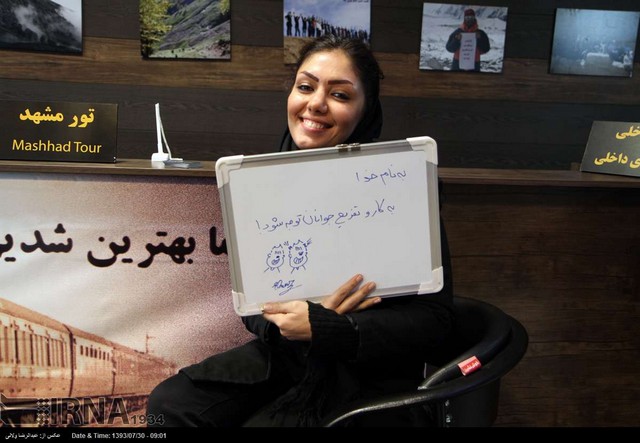 تور مشهد
Mashhad Tour
به نام خدا
به کار و تفریح جوانان توجه شود!
ما بهترین شدیم
داخلی
ی داخلی
IRNA 1934
عکاس از: عبدالرضا ولائی Date & Time: 1393/07/30 - 09:01